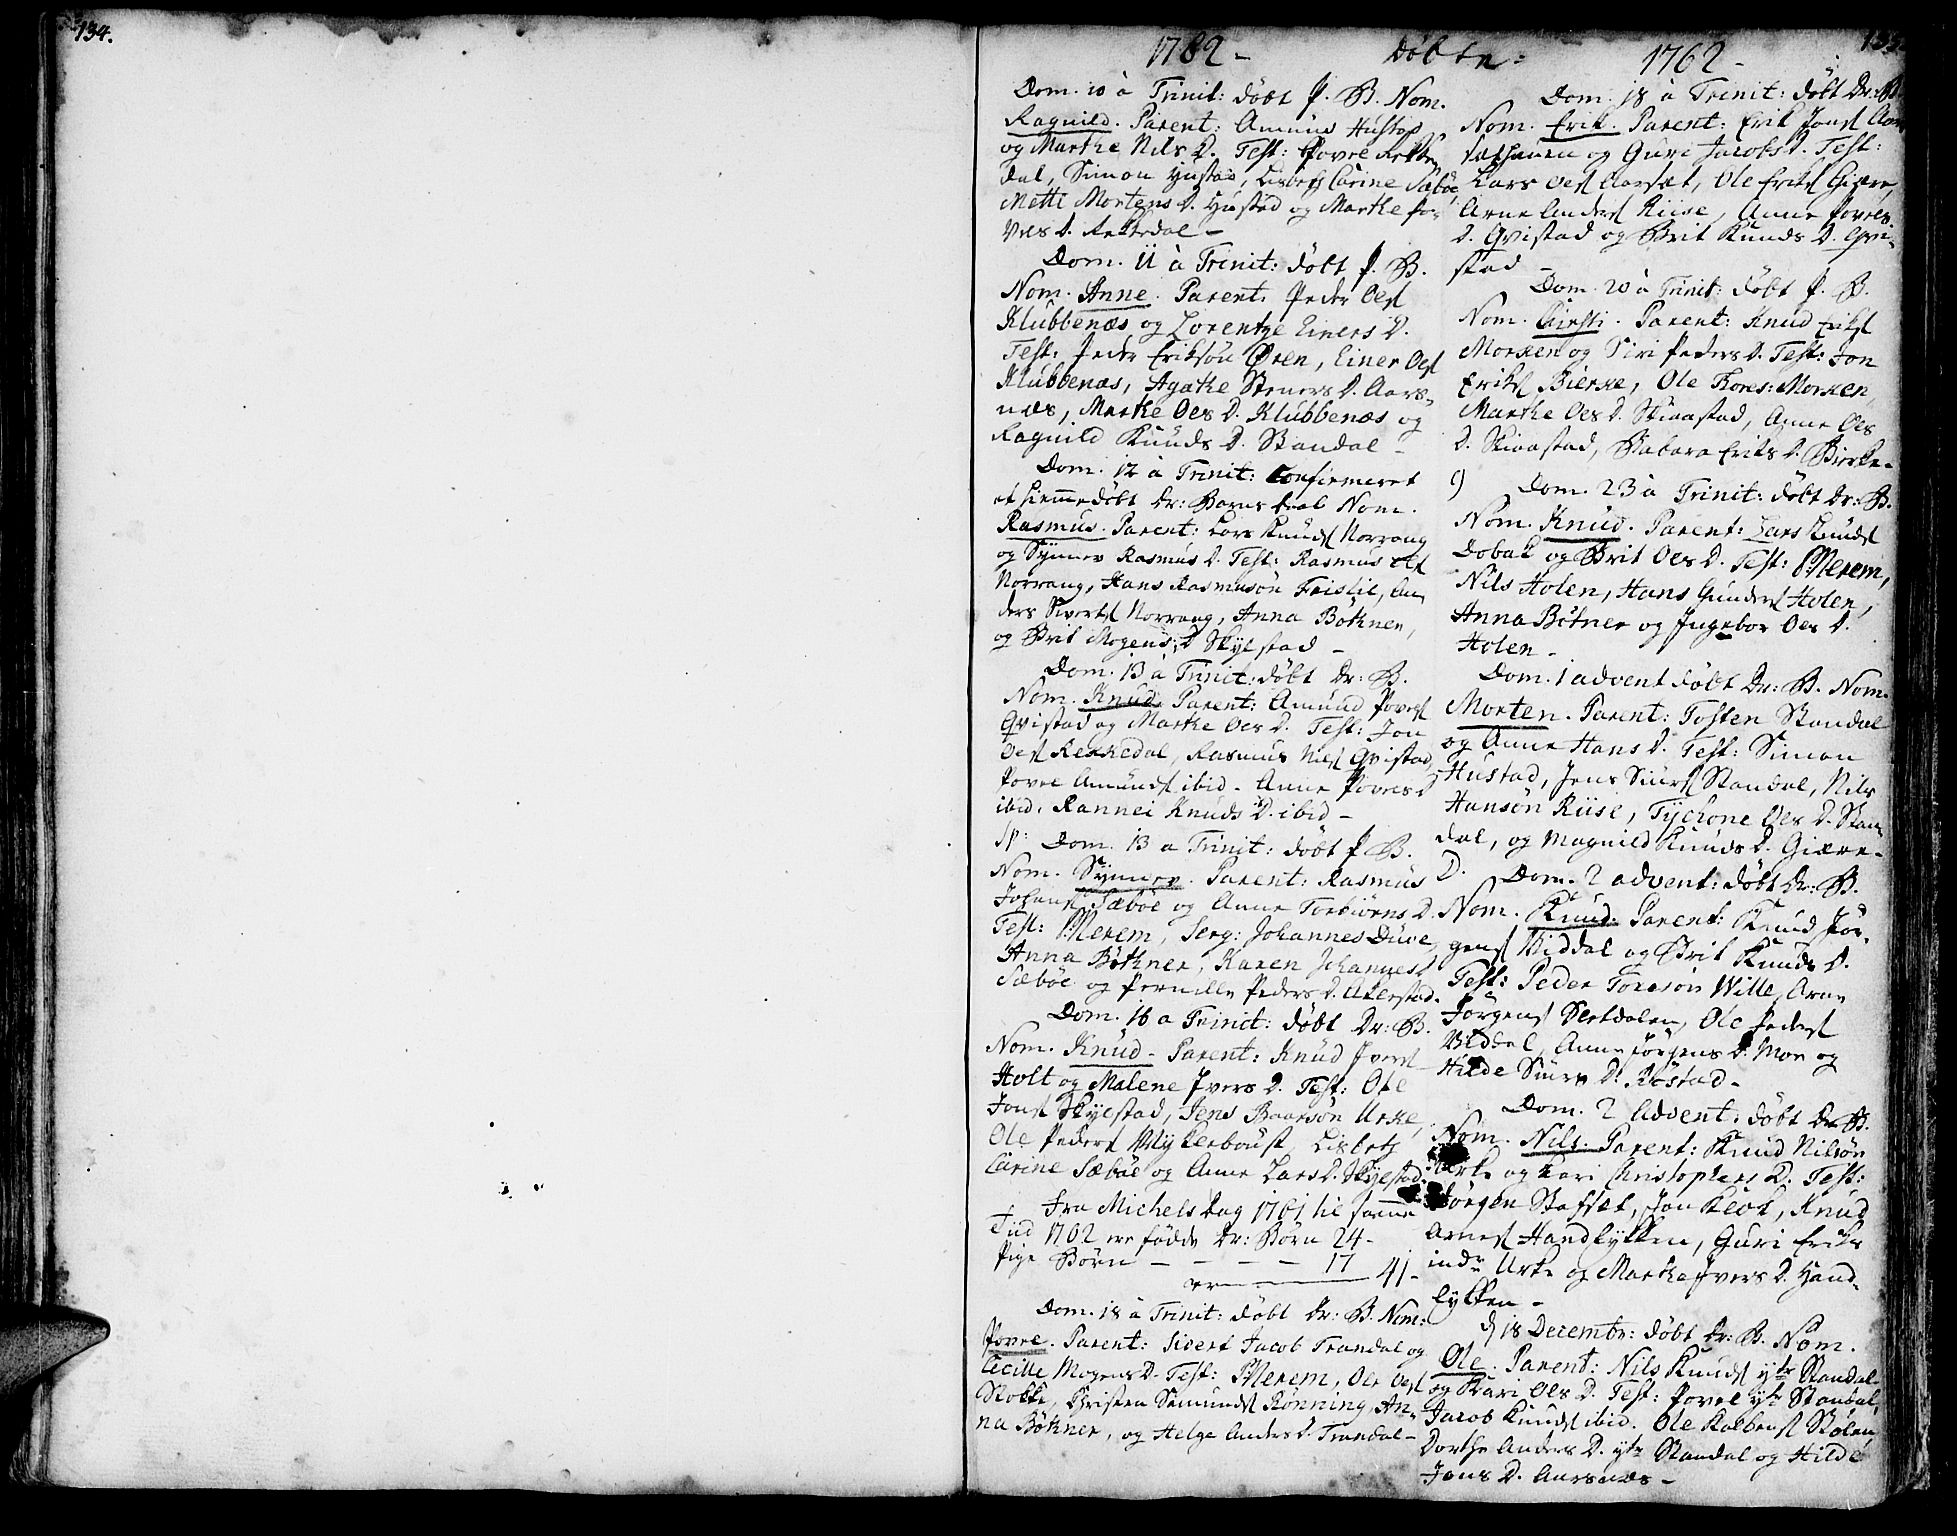 134.
135
1762 - Døbte: 1762 -
Dom. 10 à Trinit: døbt P. B. Nom.
Ragnild. Parent: Amund Hustad
og Marthe Nils D. Test: Povel Rekke-
dal, Simon Hustad, Lisbeth Carine Sæbøe
Mette Mortens D. Hustad og Marthe Po-
vels D. Rekkedal -
Dom. 11 à Trinit: døbt P. B.
Nom. Anne. Parent: Peder Oels
Klubbenæs og Lorentze Einers D.
Test: Peder Eriksøn Øren, Einer Oels
Klubbenæs, Agathe Steners D. Aars-
næs, Marthe Oles D. Klubbenæs og
Ragnild Knuds D. Standal -
Dom. 12 à Trinit: Confirmeret
et hiemmedøbt Dr: Barns Daab Nom.
Rasmus. Parent: Lars Knuds Norrang
og Synnev Rasmus D. Test: Rasmus
Norrang, Hans Rasmusøn Fristil, An-
ders Siverts Norrang, Anna Bøthner,
og Brit Mogens D. Skylstad -
Dom. 13 à Trinit: døbt Dr: B.
Nom. Knud. Parent: Amund Povels
Qvistad og Marthe Oles D. Test: Jon
Oels Rekkedal, Rasmus Nils Qvistad,
Povel Amunds ibid. Anne Povels D
ibid. Rannei Knuds D. ibid -
Sp: Dom. 13 a Trinit: døbt P B.
Nom. Synnev. Parent: Rasmus
Johans Sæbøe og Anne Torbiørns D.
Test: P. Merem, Serg: Johannes Duve,
Anna Bøthner, Karen Johannes D
Sæbøe og Pernille Peders D. Aakerstad.
Dom. 16 a Trinit: døbt Dr: B.
Nom. Knud - Parent: Knud Ivers
Holt og Malene Ivers D. Test: Ole
Jons Skylstad, Jens Baarsøn Urke,
Ole Peders Myklebøust Lisbeth
Carine Sæbøe og Anne Lars D. Skylstad.
Fra Michels Dag 1761 til samme
Tiid 1762 ere fødde Dr: Børn 24 -
Pige Børn - - - - 17
er 41 -
Dom. 18 à Trinit: døbt Dr: B. Nom:
Povel. Parent: Sivert Jacob Trandal og
Cecilie Mogens D. Test: P. Merem, Ole Oels
Stokke, Christen Samunds Rønning, An-
na Bøthner, og Helge Anders D. Trandal -
Dom. 18 a Trinit: døbt Dr: B.
Nom. Erik. Parent: Erik Jons Aar-
sethauen og Guri Jacobs D. Test:
Lars Oels Aarset, Ole Eriks Giære,
Arne Anders Riise, Anne Povels
D. Qvistad og Brit Knuds D. Qvi-
stad -
Dom. 20 à Trinit: døbt P. B.
Nom. Kirsti. Parent: Knud Eriks
Morken og Siri Peders D. Test: Jon
Eriks Bierke, Ole Thores: Morken,
Marthe Oles D. Skiaastad, Anne Oles
D. Skiaastad, Babara Eriks D. Bierke -
Dom. 23 à Trinit: døbt Dr: B.
Nom. Knud. Parent: Lars Knuds
Dobak og Brit Oles D. Test: P. Merem,
Nils Holen, Hans Gunders Holen,
Anna Bøtner og Ingebor Oles D.
Holen -
Dom. 1 advent døbt Dr: B. Nom.
Morten. Parent: Tosten Standal
og Anne Hans D. Test: Simon
Hustad, Jens Siurs Standal, Nils
Hansøn Riise, Tychone Oles D. Stan-
dal, og Magnild Knuds D. Giære -
D. Dom. 2 advent: døbt Dr: B.
Nom. Knud. Parent: Knud Jør-
gens Viddal og Brit Knuds D.
Test: Peder Toresøn Wille, Arne
Jørgens Sletdalen, Ole Peders
Viddal, Anne Jørgens D. Moe og
Hilde Siurs D. Røstad -
Dom. 2 Advent: døbt Dr B.
Nom. Nils. Parent: Knud Nilsøn
Urke og Kari Christophers D. Test:
Jørgen Stafset, Jon Klok, Knud
Arnes Haandlykken, Guri Eriks
indr Urke og Marthe Ivers D. Hand-
lykken -
d 18 Decembr: døbt Dr: B. Nom.
Ole. Parent: Nils Knuds ytr Standal
og Kari Oles D. Test: Povel ytr Standal,
Jacob Knuds ibid. Ole Kolbens Stølen
Dorthe Anders D. ytr Standal og Hilde
Jons D. Aarsnæs -